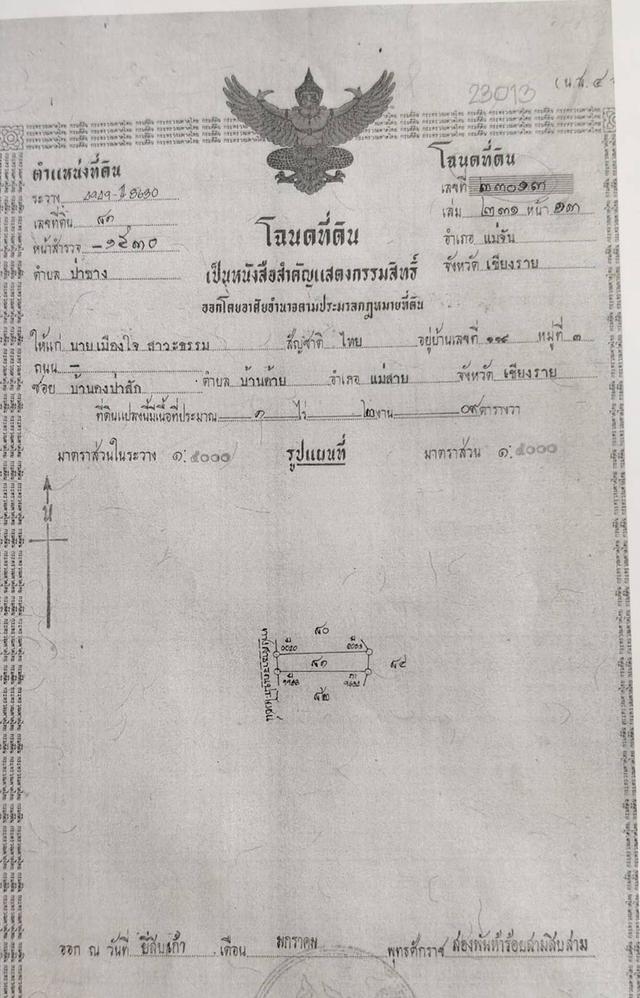 23013
(น.ส.๔
ตำแหน่งที่ดิน
ระวาง
เลขที่ดิน ๕๑
หน้าสำรวจ
ตำบล ป่าซาง
โฉนดที่ดิน
เลขที่ ๒๓๐๑๓
เล่ม ๒๓๑ หน้า ๑๓
อำเภอ แม่จัน
จังหวัด เชียงราย
โฉนดที่ดิน
เป็นหนังสือสำคัญแสดงกรรมสิทธิ์
ออกโดยอาศัยอำนาจตามประมวลกฎหมายที่ดิน
ให้แก่ นายเมืองใจ สาวะธรรม สัญชาติ ไทย อยู่บ้านเลขที่ หมู่ที่ ๓
ถนน –
ซอย บ้านดงป่าสัก ตำบล บ้านด้าย อำเภอ แม่สาย จังหวัด เชียงราย
ที่ดินแปลงนี้มีเนื้อที่ประมาณ ๑ ไร่ งาน ตารางวา
มาตราส่วนในระวาง ๑:๕๐๐๐ รูปแผนที่ มาตราส่วน ๑:๕๐๐๐
น
๕๐
๕๑
๕๒
ออก ณ วันที่ ยี่สิบเก้า เดือน มกราคม พุทธศักราช สองพันห้าร้อยสามสิบสาม